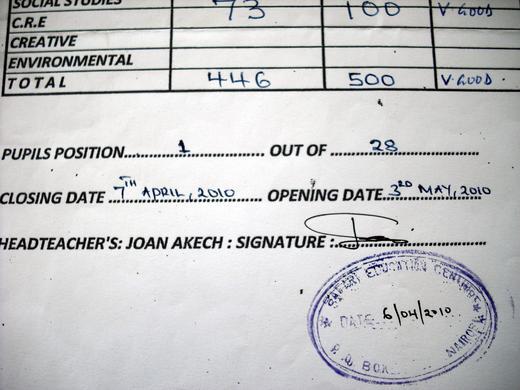 SOCIAL STUDIES
C.R.E 73 100 V.GOOD
CREATIVE
ENVIRONMENTAL
TOTAL 446 500 V.GOOD
PUPILS POSITION 1 OUT OF 28
CLOSING DATE 7TH APRIL, 2010 OPENING DATE 3RD MAY, 2010
HEADTEACHER'S: JOAN AKECH : SIGNATURE :
EDUCATION CENTRE
DATE 6/04/2010
P.O. BOX
NAIROBI